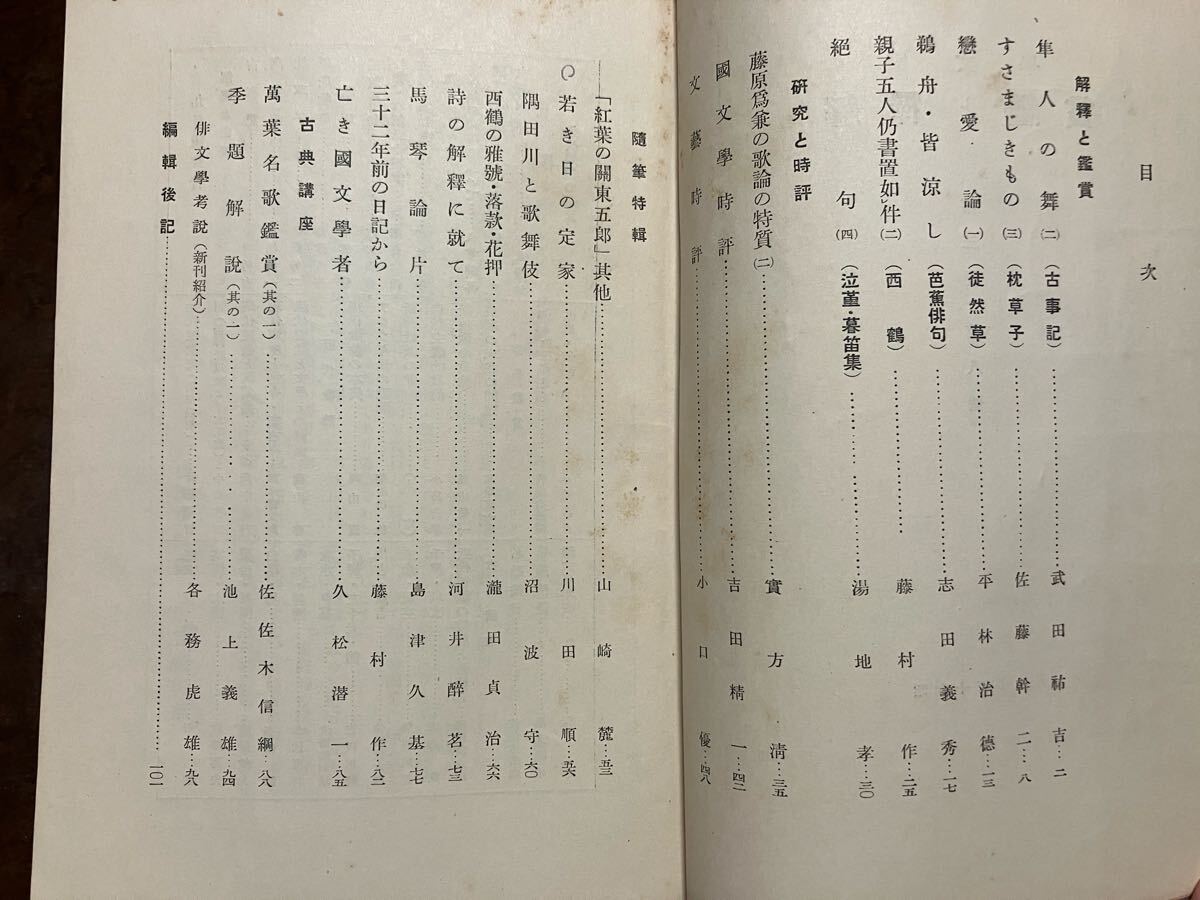 目次
解釋と鑑賞
隼人の舞(二)(古事記)……武田祐吉…二
すさまじきもの(三)(枕草子)……佐藤幹二…八
戀愛論(一)(徒然草)……平林治德…一三
鵜舟・皆涼し(芭蕉俳句)……志田義秀…一七
親子五人仍書置如件(二)(西鶴)……藤村作…二五
絕句(四)(泣菫・暮笛集)……湯地孝…三〇
硏究と時評
藤原爲兼の歌論の特質(二)……實方淸…三五
國文學時評……吉田精一…四二
文藝時評……小口優…四八
隨筆特輯
「紅葉の關東五郎」其他……山崎麓…五三
若き日の定家……川田順…五六
隅田川と歌舞伎……沼波守…六〇
西鶴の雅號・落款・花押……瀧田貞治…六六
詩の解釋に就て……河井醉茗…七三
馬琴論片……島津久基…七七
三十二年前の日記から……藤村作…八二
亡き國文學者……久松潜一…八五
古典講座
萬葉名歌鑑賞(其の一)……佐佐木信綱…八八
季題解說(其の一)……池上義雄…九四
俳文學考說(新刊紹介)……各務虎雄…九八
編輯後記……一〇一